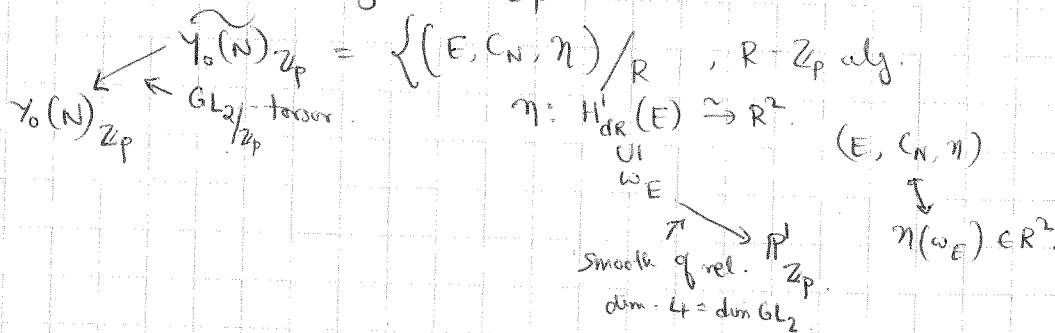 Ỹ₀(N)_ℤₚ = {(E, C_N, η)/R , R - ℤₚ alg.
Y₀(N)_ℤₚ
GL₂/ℤₚ - torsor.
η : H¹_dR(E) ⥲ R².
∪|
ω_E
(E, C_N, η)
↕
η(ω_E) ⊂ R².
ℙ¹_ℤₚ.
Smooth of rel.
dim - 4 = dim GL₂